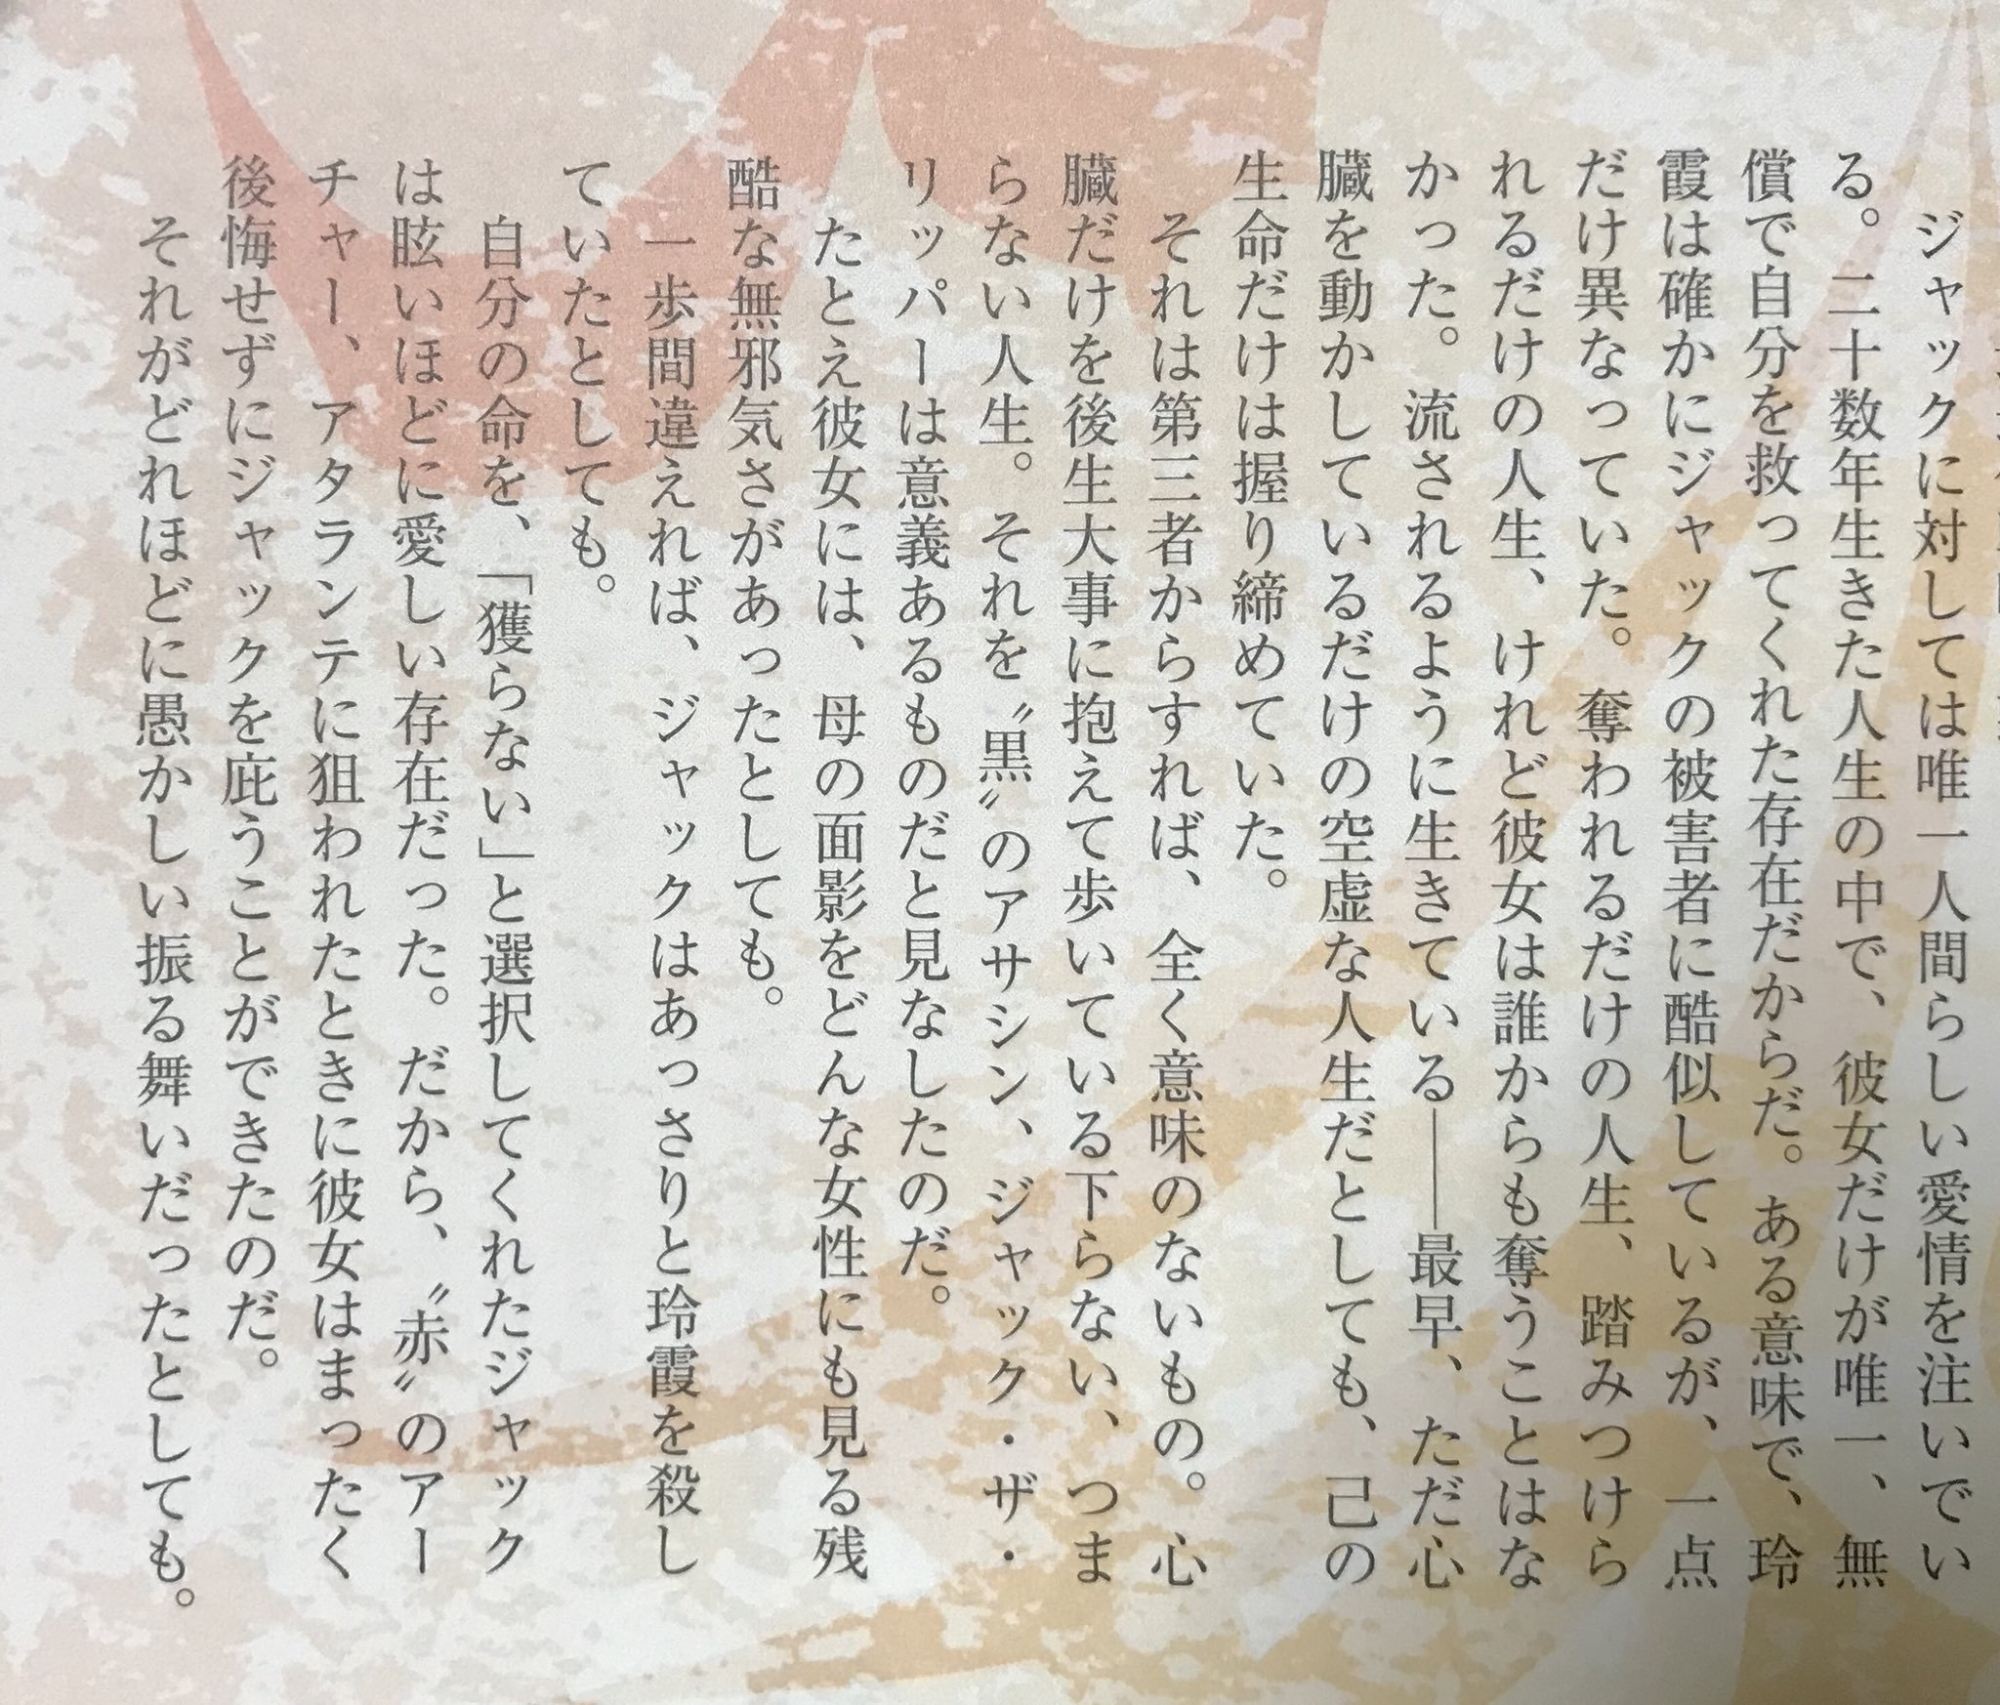 ジャックに対しては唯一人間らしい愛情を注いでい
る。二十数年生きた人生の中で、彼女だけが唯一、無
償で自分を救ってくれた存在だからだ。ある意味で、玲
霞は確かにジャックの被害者に酷似しているが、一点
だけ異なっていた。奪われるだけの人生、踏みつけら
れるだけの人生、けれど彼女は誰からも奪うことはな
かった。流されるように生きている――最早、ただ心
臓を動かしているだけの空虚な人生だとしても、己の
生命だけは握り締めていた。
それは第三者からすれば、全く意味のないもの。心
臓だけを後生大事に抱えて歩いている下らない、つま
らない人生。それを〝黒〟のアサシン、ジャック・ザ・
リッパーは意義あるものだと見なしたのだ。
たとえ彼女には、母の面影をどんな女性にも見る残
酷な無邪気さがあったとしても。
一歩間違えれば、ジャックはあっさりと玲霞を殺し
ていたとしても。
自分の命を、「獲らない」と選択してくれたジャック
は眩いほどに愛しい存在だった。だから、〝赤〟のアー
チャー、アタランテに狙われたときに彼女はまったく
後悔せずにジャックを庇うことができたのだ。
それがどれほどに愚かしい振る舞いだったとしても。